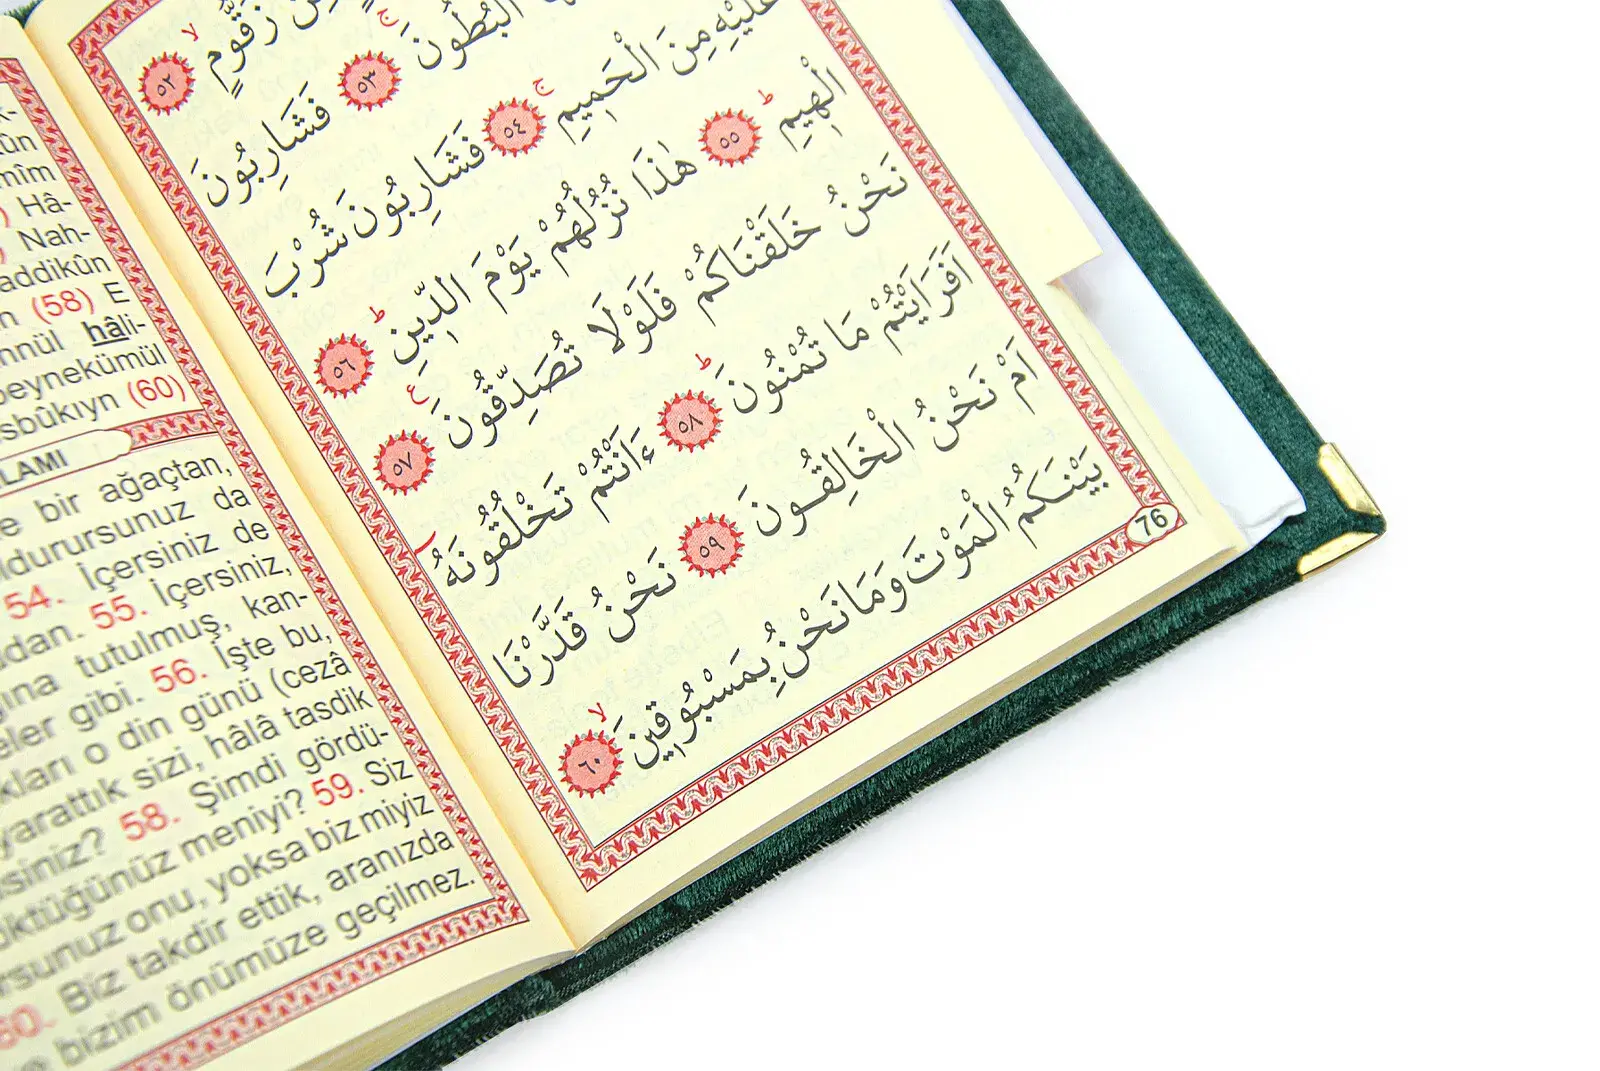 مِنْ زَقُّومٍۙ ﴿٥٢﴾
الْبُطُونَۚ ﴿٥٣﴾ فَشَارِبُونَ
عَلَيْهِ مِنَ الْحَمِيمِۚ ﴿٥٤﴾ فَشَارِبُونَ شُرْبَ
الْهِيمِۜ ﴿٥٥﴾ هٰذَا نُزُلُهُمْ يَوْمَ الدِّينِۜ ﴿٥٦﴾
نَحْنُ خَلَقْنَاكُمْ فَلَوْلَا تُصَدِّقُونَ ﴿٥٧﴾
اَفَرَاَيْتُمْ مَا تُمْنُونَۜ ﴿٥٨﴾ ءَاَنْتُمْ تَخْلُقُونَهُٓ
اَمْ نَحْنُ الْخَالِقُونَ ﴿٥٩﴾ نَحْنُ قَدَّرْنَا
بَيْنَكُمُ الْمَوْتَ وَمَا نَحْنُ بِمَسْبُوقِينَۙ ﴿٦٠﴾
76
ûn
mîm
Hâ-
Nah-
addikûn
n (58) E
nnül hâli-
beynekümül
sbûkıyn (60)
LAMI
e bir ağaçtan,
ldurursunuz da
54. İçersiniz de
dan. 55. İçersiniz,
ğına tutulmuş, kan-
eler gibi. 56. İşte bu,
kları o din günü (cezâ
yarattık sizi, hâlâ tasdik
siniz? 58. Şimdi gördü-
öktüğünüz meniyi? 59. Siz
rsunuz onu, yoksa biz miyiz
60. Biz takdir ettik, aranızda
ve bizim önümüze geçilmez.